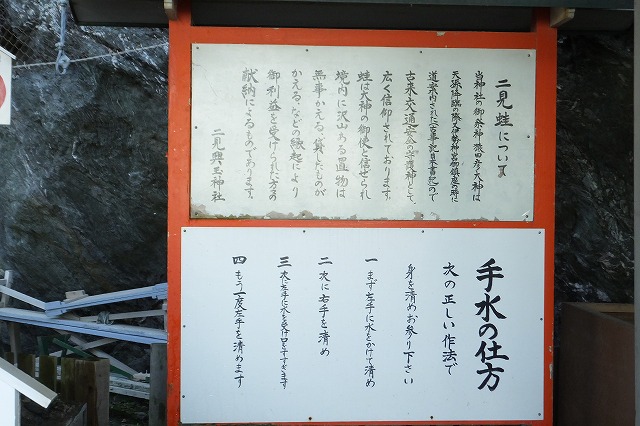 二見蛙について
当神社の御祭神 猿田彦大神は
天孫降臨の際又伊勢神宮御鎮座の時に
道案内された(古事記日本書紀)ので
古来交通安全の守護神として、
広く信仰されております。
蛙は大神の御使と信ぜられ
境内に沢山ある置物は
無事かえる、貸したものが
かえる、などの縁起により
御利益を受けられた方の
献納によるものであります。
二見興玉神社
手水の仕方
次の正しい作法で
身を清めお参り下さい
一 まず左手に水をかけて清め
二 次に右手を清め
三 次に左手に水を受け口をすすぎます
四 もう一度左手を清めます